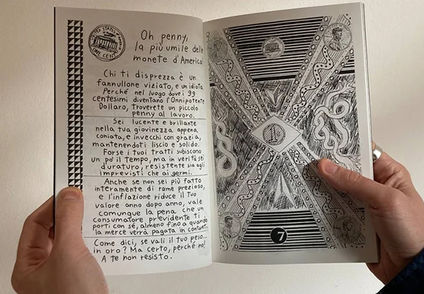 Oh penny,
la più umile delle
monete d'America!
Chi ti disprezza è un
fannullone viziato, e un idiota.
Perché nel luogo dove i 99
centesimi diventano l'Onnipotente
Dollaro, troverete un piccolo
penny al lavoro.
Sei lucente e brillante
nella tua giovinezza appena
coniata, e invecchi con grazia,
mantenendoti liscio e solido.
Forse i tuoi tratti subiscono
un po' il tempo, ma in verità sei
duraturo, resistente sia agli
imprevisti che ai germi.
Anche se non sei più fatto
interamente di rame prezioso,
e l'inflazione riduce il tuo
valore anno dopo anno, vale
comunque la pena che un
consumatore previdente ti
porti con sé, almeno fino a quando
la merce verrà pagata in contanti.
Come dici, se vali il tuo peso...
in oro? Ma certo, perché no!
A te non resisto.
1
7